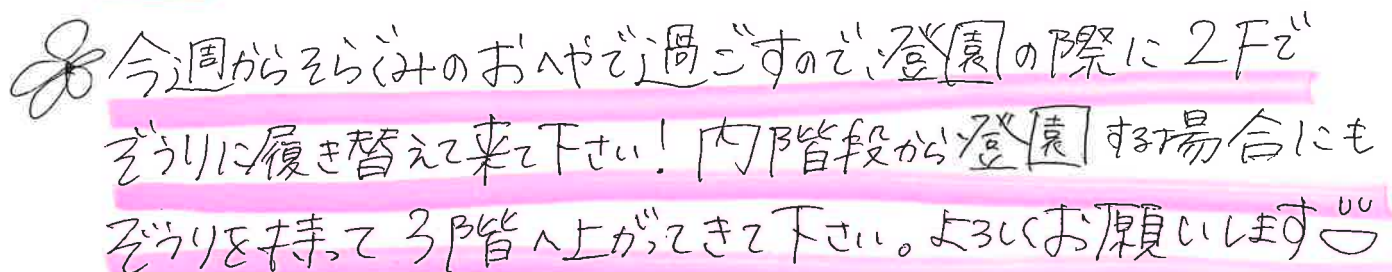 今週からそらぐみのおへやで過ごすので、登園の際に2Fで
ぞうりに履き替えて来て下さい！内階段から登園する場合にも
ぞうりを持って3階へ上がってきて下さい。よろしくお願いします